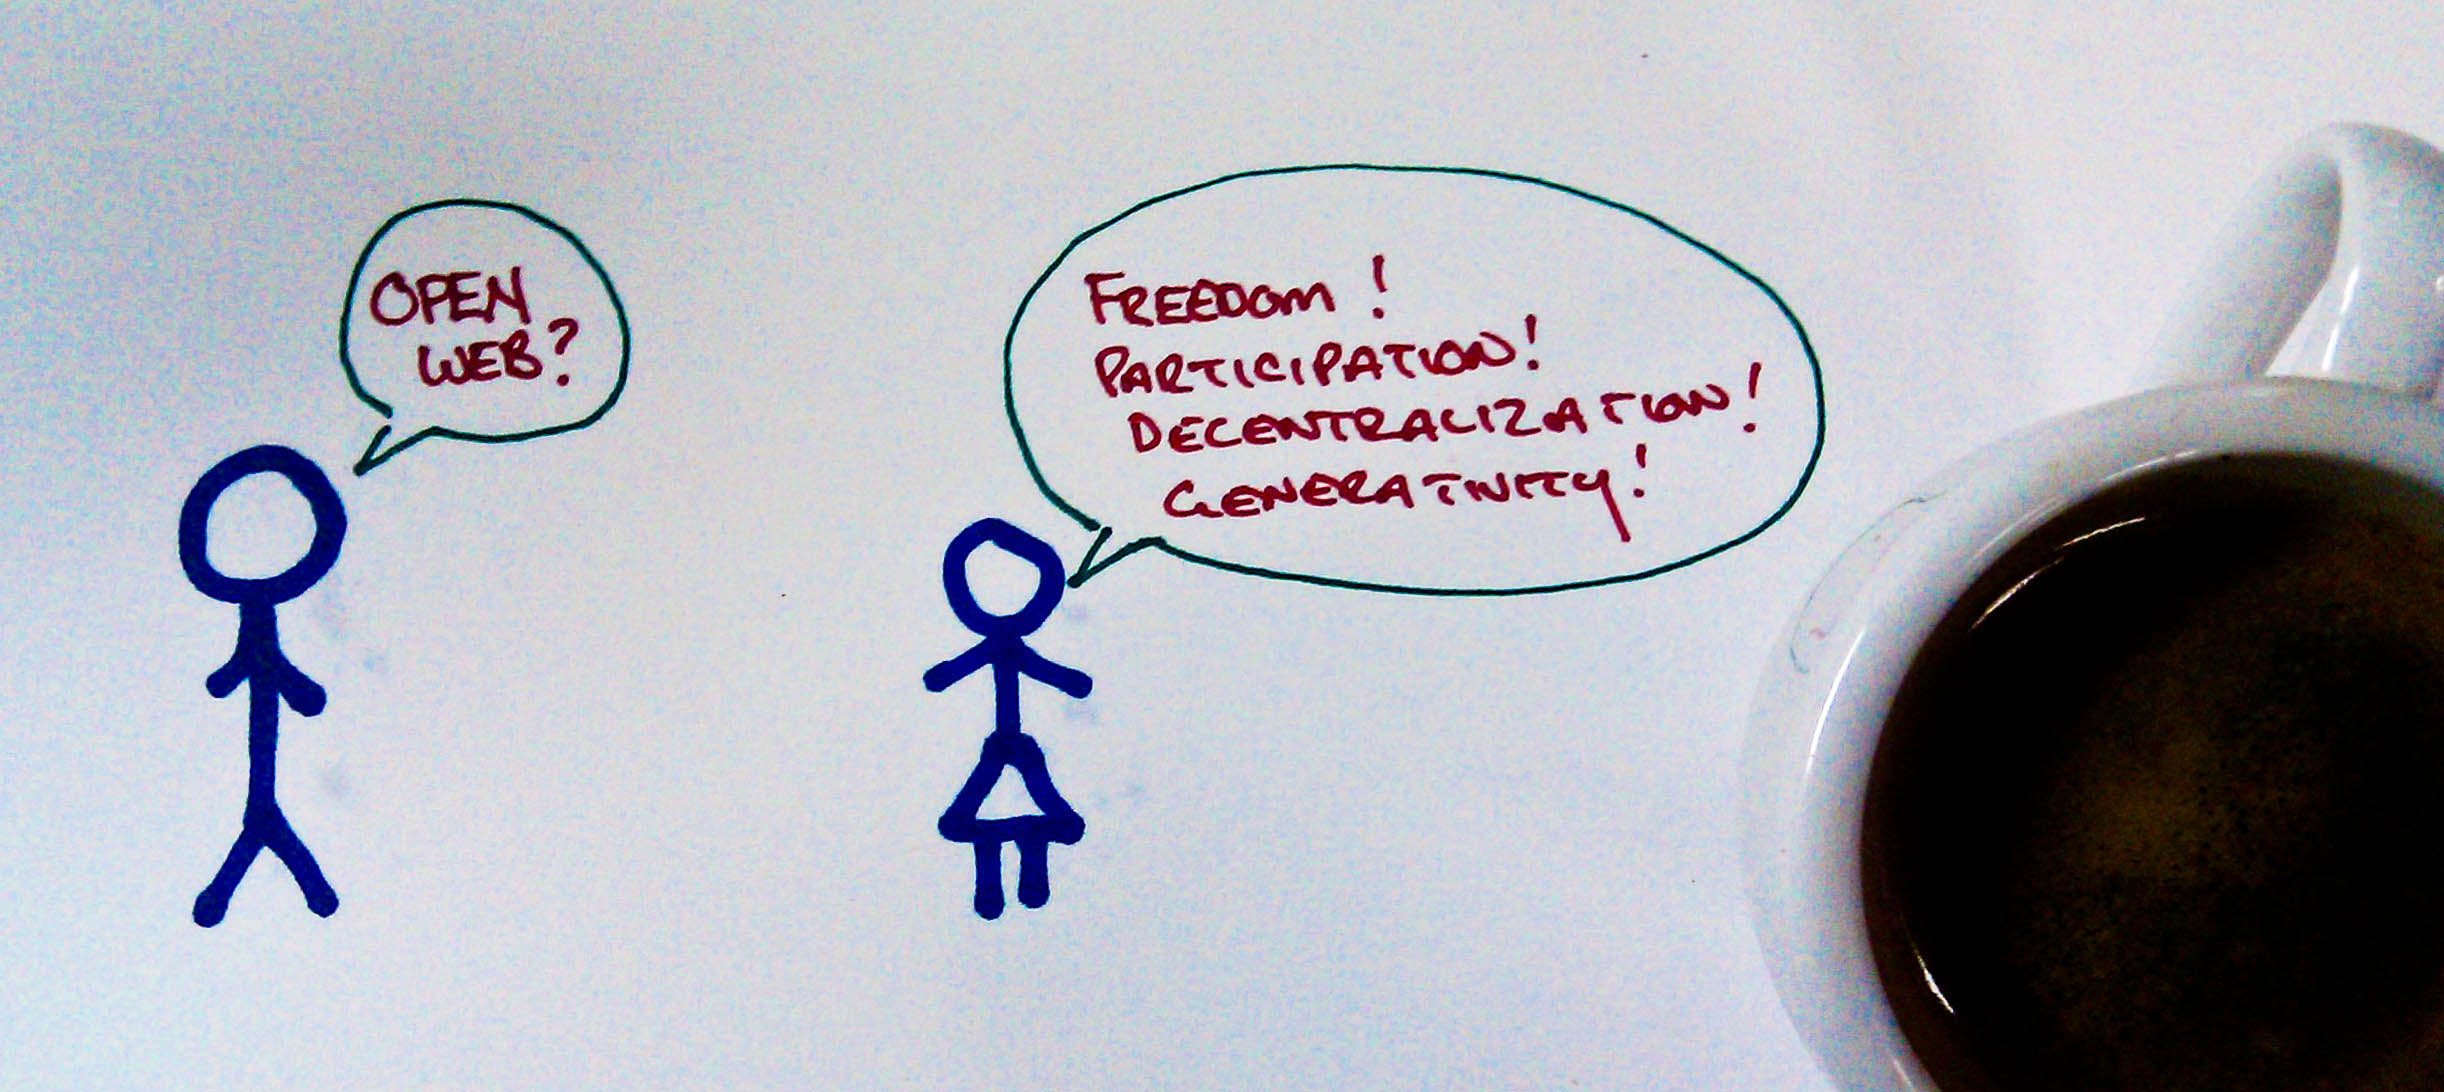 OPEN
WEB?
FREEDOM!
PARTICIPATION!
DECENTRALIZATION!
GENERATIVITY!